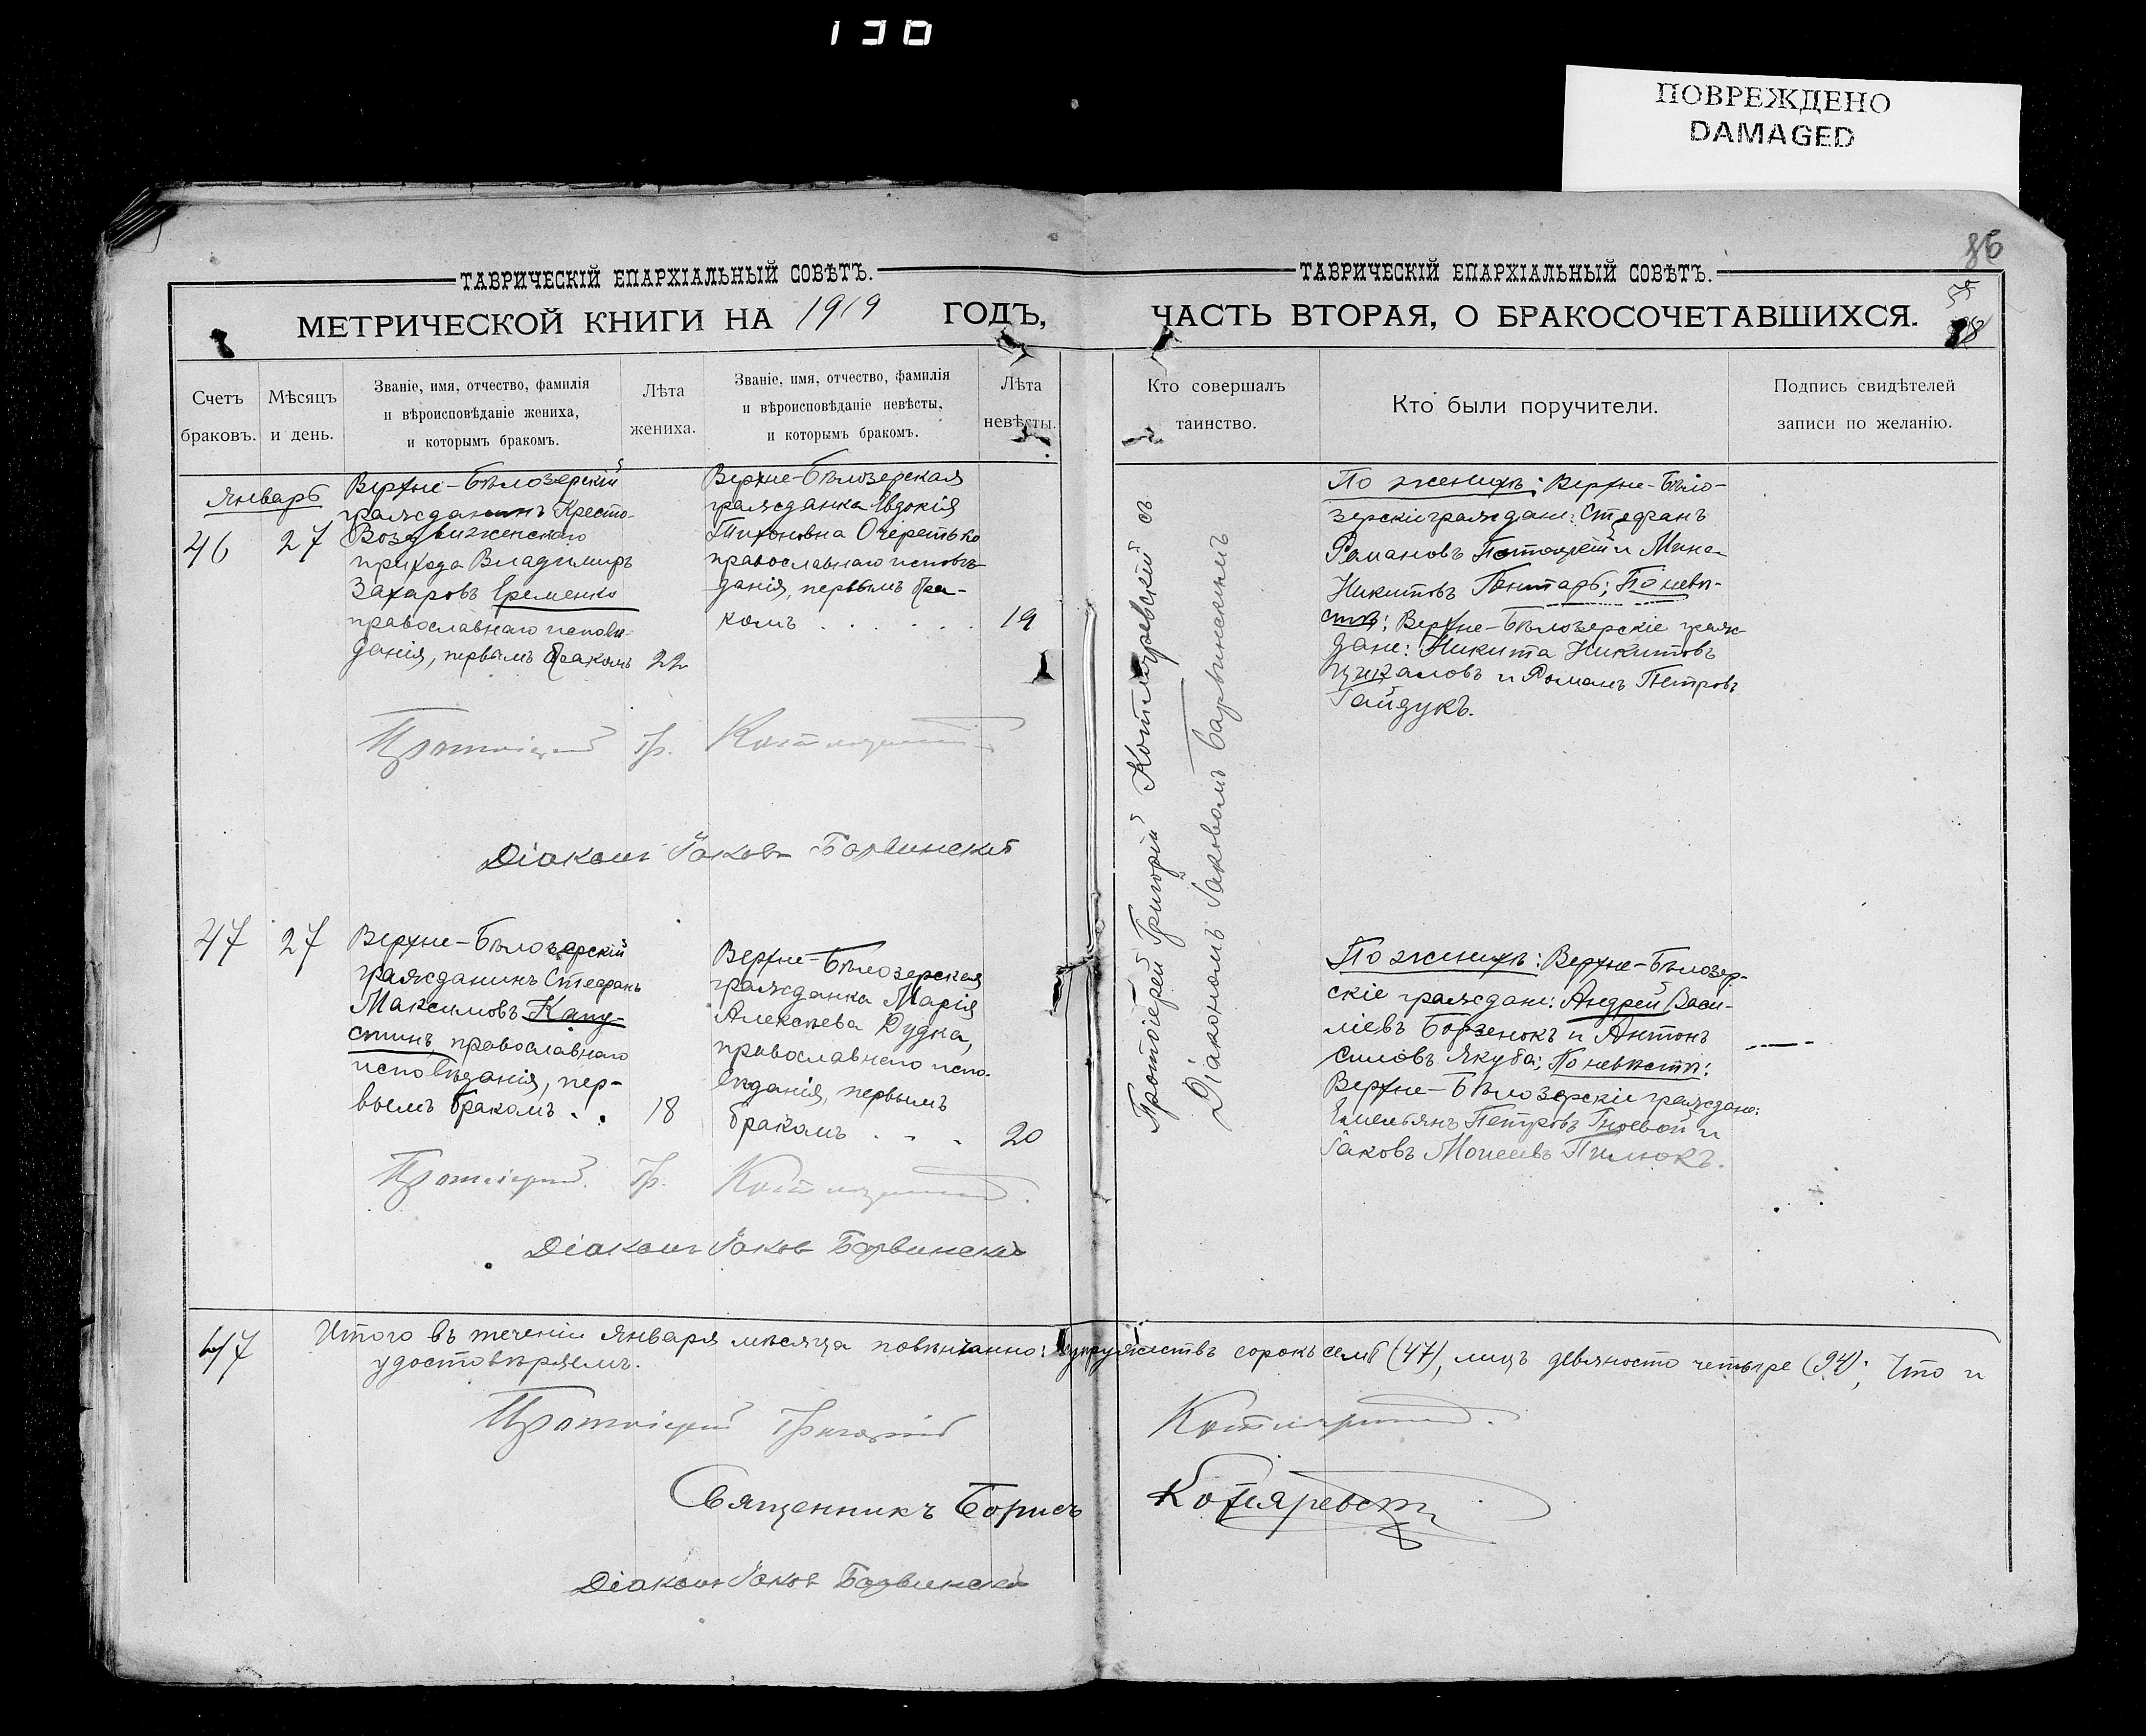 136
ПОВРЕЖДЕНО
DAMAGED
86
ТАВРИЧЕСКІЙ ЕПАРХІАЛЬНЫЙ СОВѢТЪ.
МЕТРИЧЕСКОЙ КНИГИ НА 1919 ГОДЪ,
Счетъ браковъ.
Мѣсяцъ и день.
Званіе, имя, отчество, фамилія
и вѣроисповѣданіе жениха,
и которымъ бракомъ.
Лѣта
жениха.
Званіе, имя, отчество, фамилія
и вѣроисповѣданіе невѣсты,
и которымъ бракомъ.
Лѣта
невѣсты.
Январь
46
27
Верхне-Бѣлозерскій
гражданинъ Кресто-
Воздвиженскаго
прихода Владимиръ
Захаровъ Еременко
православнаго исповѣ-
данія, первымъ бракомъ
22
Верхне-Бѣлозерская
гражданка Евдокія
Тихоновна Очеретько
православнаго исповѣ-
данія, первымъ бра-
комъ . . . . . .
19
Протоіерей Гр. Котляревскій
Діаконъ Іаковъ Барвинскій
47
27
Верхне-Бѣлозерскій
гражданинъ Стефанъ
Максимовъ Капу-
стинъ, православнаго
исповѣданія, пер-
вымъ бракомъ . .
18
Верхне-Бѣлозерская
гражданка Марія
Алексѣева Дудка,
православнаго испо-
вѣданія, первымъ
бракомъ . . .
20
Протоіерей Гр. Котляревскій
Діаконъ Іаковъ Барвинскій
ТАВРИЧЕСКІЙ ЕПАРХІАЛЬНЫЙ СОВѢТЪ.
ЧАСТЬ ВТОРАЯ, О БРАКОСОЧЕТАВШИХСЯ.
Кто совершалъ
таинство.
Кто были поручители.
Подпись свидѣтелей
записи по желанію.
Протоіерей Григорій Котляревскій съ
Діакономъ Іаковомъ Барвинскимъ
По женихѣ: Верхне-Бѣло-
зерскіе граждане: Стефанъ
Романовъ Потоцкій и Мина
Никитовъ Гонтарь; По невѣ-
стѣ: Верхне-Бѣлозерскіе граж-
дане: Никита Никитовъ
Цыкаловъ и Романъ Петровъ
Гайдукъ.
По женихѣ: Верхне-Бѣлозер-
скіе граждане: Андрей Васи-
ліевъ Борзенокъ и Антонъ
Силовъ Якуба; По невѣстѣ:
Верхне-Бѣлозерскіе граждане:
Емельянъ Петровъ Гноевой и
Іаковъ Моисеевъ Пилюкъ.
47
Итого въ теченіи Января мѣсяца повѣнчанно: супружествъ сорокъ семь (47), лицъ девяносто четыре (94); Что и
удостовѣряемъ.
Протоіерей Григорій Котляревскій.
Священникъ Борисъ Котляревскій
Діаконъ Іаковъ Барвинскій